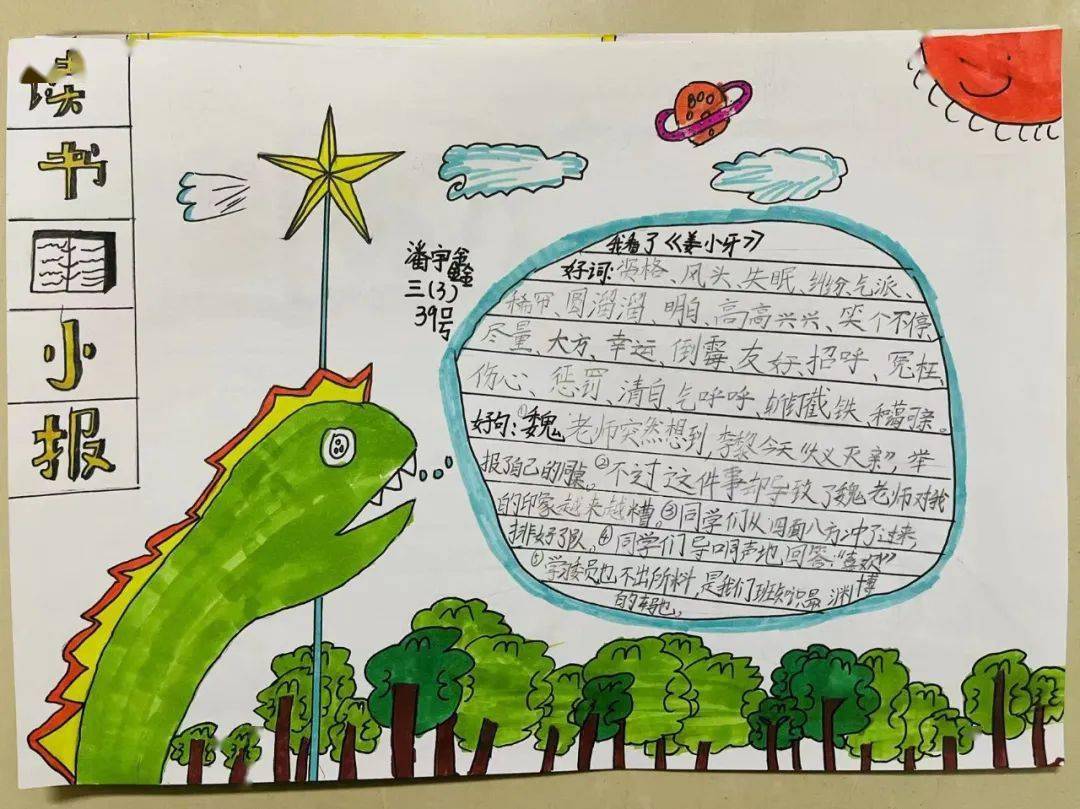 读
书
小
报
潘宇鑫
三(3)
39号
我看了《姜小牙》
好词:资格、风头、失眠、纠纷、气派、
稀罕、圆溜溜、明白、高高兴兴、笑个不停、
尽量、大方、幸运、倒霉、友好、招呼、冤枉、
伤心、惩罚、清白、气呼呼、斩钉截铁、和蔼可亲。
好句:①魏老师突然想到,李黎今天“大义灭亲”,举
报了自己的同桌。②不过这件事却导致了魏老师对我
的印象越来越糟。③同学们从四面八方冲了过来,
排好了队。④同学们异口同声地回答:“喜欢”
⑤学习委员也不出所料,是我们班知识最渊博
的